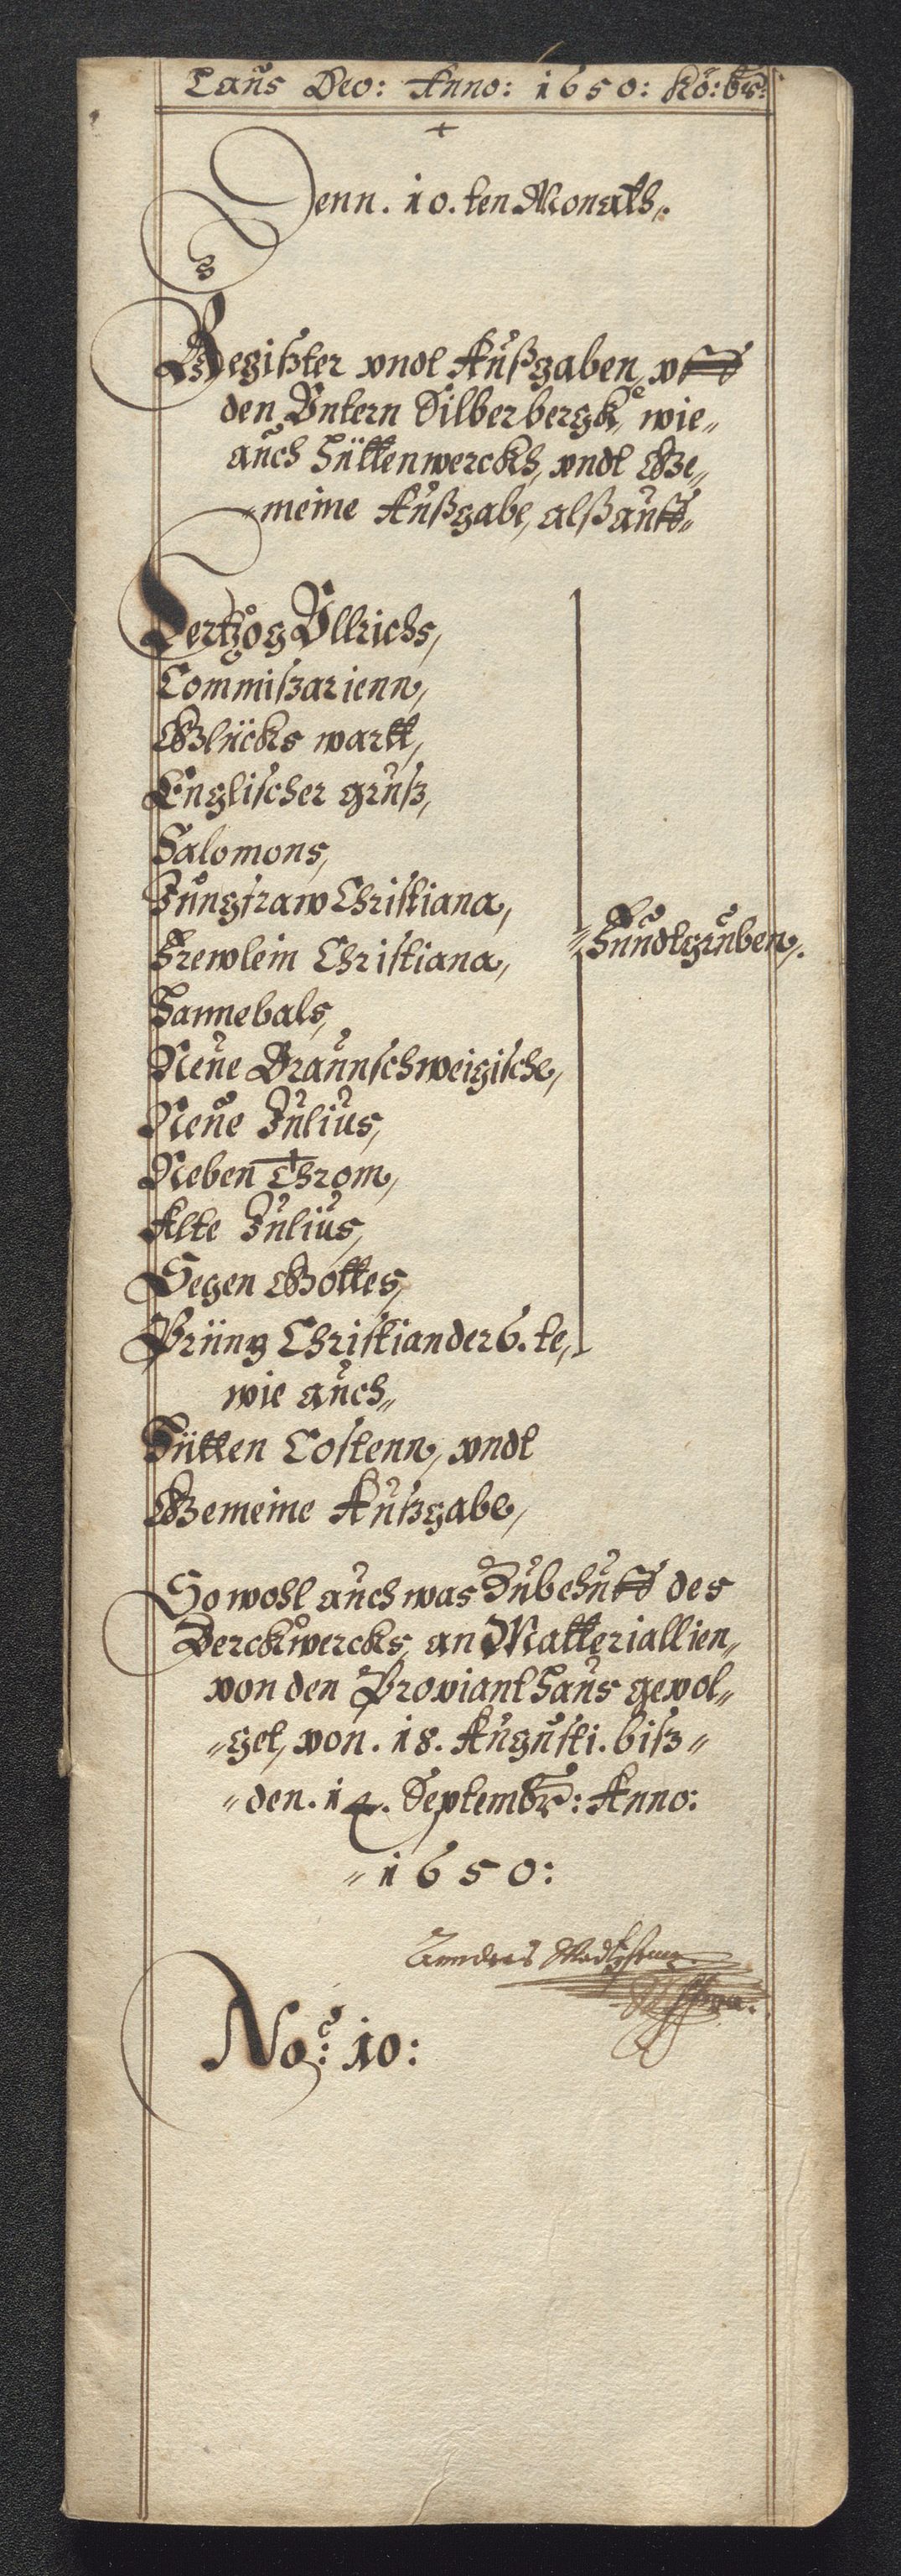 Laus Deo: Anno: 1650: Kö:br:
Denn. 10. ten Monath,.
Regißter vndt Außgaben, vff
den Vntern Silberbergk, wie„
auch Hüttenwercks, vndt Ge„
„meine Außgabe, alß auff„
Hertzog Vllrichs,
Commißarienn,
Glücks wartt,
Englischer gruß,
Salomons,
Jungfraw Christiana,
Frewlein Christiana,
„Fundtgruben,.
Hannebals,
Neue Braunschweigische,
Neue Julius,
Neben Throm,
Alte Julius,
Segen Gottes,
Printz Christian der 6. te,
wie auch„
Hütten Costenn, vndt
Gemeine Außgabe,
So wohl auch was Zubehuff des
Berckwercks, an Matteriallien„
von den Proviant Haus gevol„
„get, von. 18. Augusti. biß„
„den. 14. Septembr: Anno:
„1650:
Anndres
No: 10: